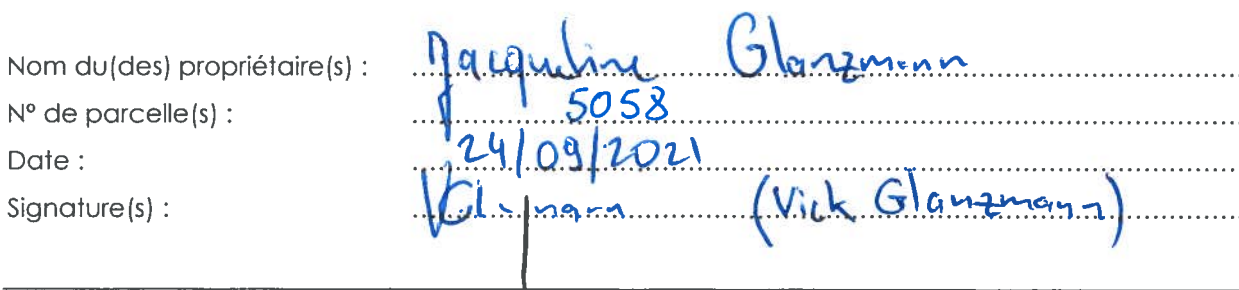 Nom du(des) propriétaire(s) : Jacqueline Glanzmann
N° de parcelle(s) : 5058
Date : 24/09/2021
Signature(s) : (Vick Glanzmann)